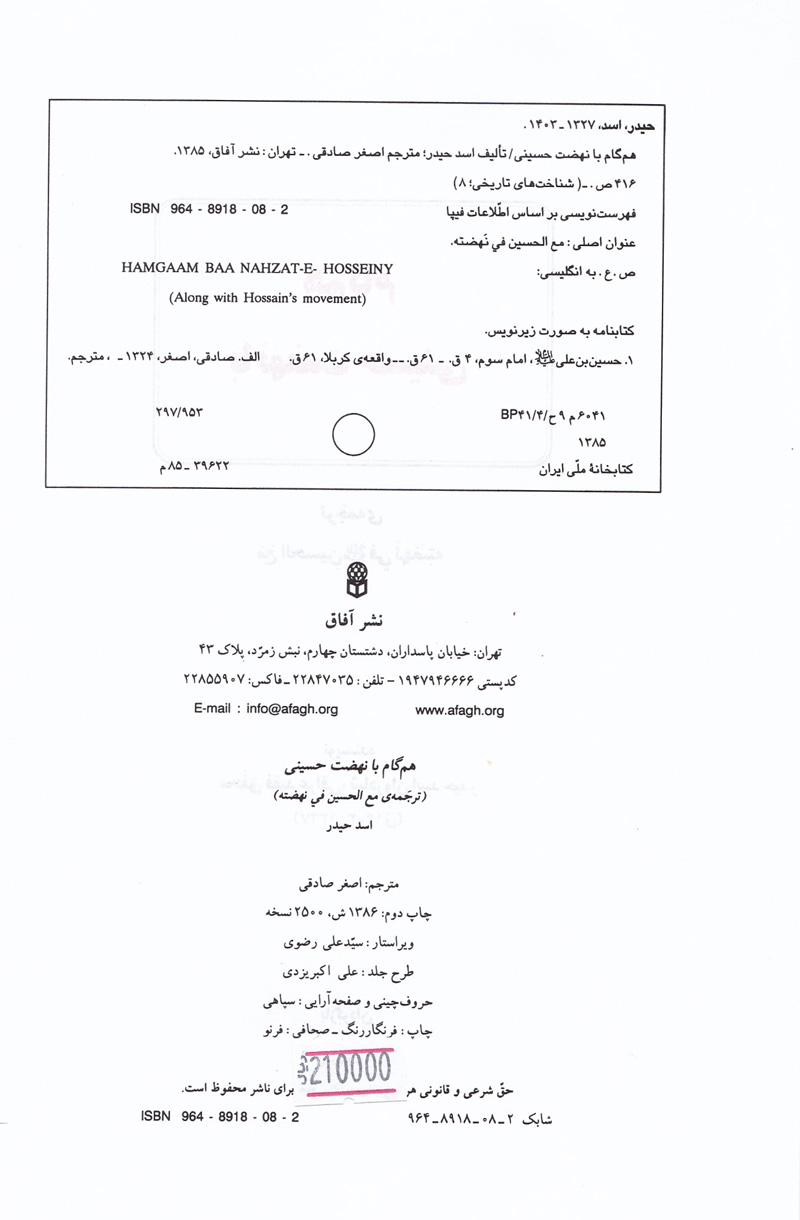 حیدر، اسد، ۱۳۲۷ ـ ۱۴۰۳.
هم‌گام با نهضت حسینی/ تألیف اسد حیدر؛ مترجم اصغر صادقی. ـ تهران: نشر آفاق، ۱۳۸۵.
۴۱۶ ص. ـ( شناخت‌های تاریخی؛ ۸)
فهرست‌نویسی بر اساس اطّلاعات فیپا ISBN 964 - 8918 - 08 - 2
عنوان اصلی: مع الحسین في نَهضته.
ص. ع. به انگلیسی: HAMGAAM BAA NAHZAT-E- HOSSEINY
(Along with Hossain's movement)
کتابنامه به صورت زیرنویس.
۱. حسین‌بن‌علی، امام سوم، ۴ ق. ـ ۶۱ ق. ــ واقعه‌ی کربلا، ۶۱ ق. الف. صادقی، اصغر، ۱۳۲۴ ـ ، مترجم.
۶۰۴۱ م ۹ ح/BP۴۱/۴ ۲۹۷/۹۵۳
۱۳۸۵
کتابخانهٔ ملّی ایران ۳۹۶۲۲ ـ ۸۵ م
نشر آفاق
تهران: خیابان پاسداران، دشتستان چهارم، نبش زمرّد، پلاک ۴۳
کدپستی ۱۹۴۷۹۴۶۶۶۶ – تلفن: ۲۲۸۴۷۰۳۵ ـ فاکس: ۲۲۸۵۵۹۰۷
E-mail : info@afagh.org www.afagh.org
هم‌گام با نهضت حسینی
(ترجَمه‌ی مع الحسین في نهضته)
اسد حیدر
مترجم: اصغر صادقی
چاپ دوم: ۱۳۸۶ ش، ۲۵۰۰ نسخه
ویراستار: سیّدعلی رضوی
طرح جلد: علی اکبریزدی
حروف‌چینی و صفحه‌آرایی: سپاهی
چاپ: فرنگاررنگ ـ صحافی: فرنو
210000
حقّ شرعی و قانونی هر برای ناشر محفوظ است.
شابک ۲ ـ ۰۸ ـ ۸۹۱۸ ـ ۹۶۴ ISBN 964 - 8918 - 08 - 2